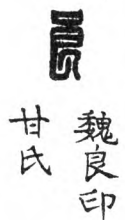 良
魏良印
甘氏